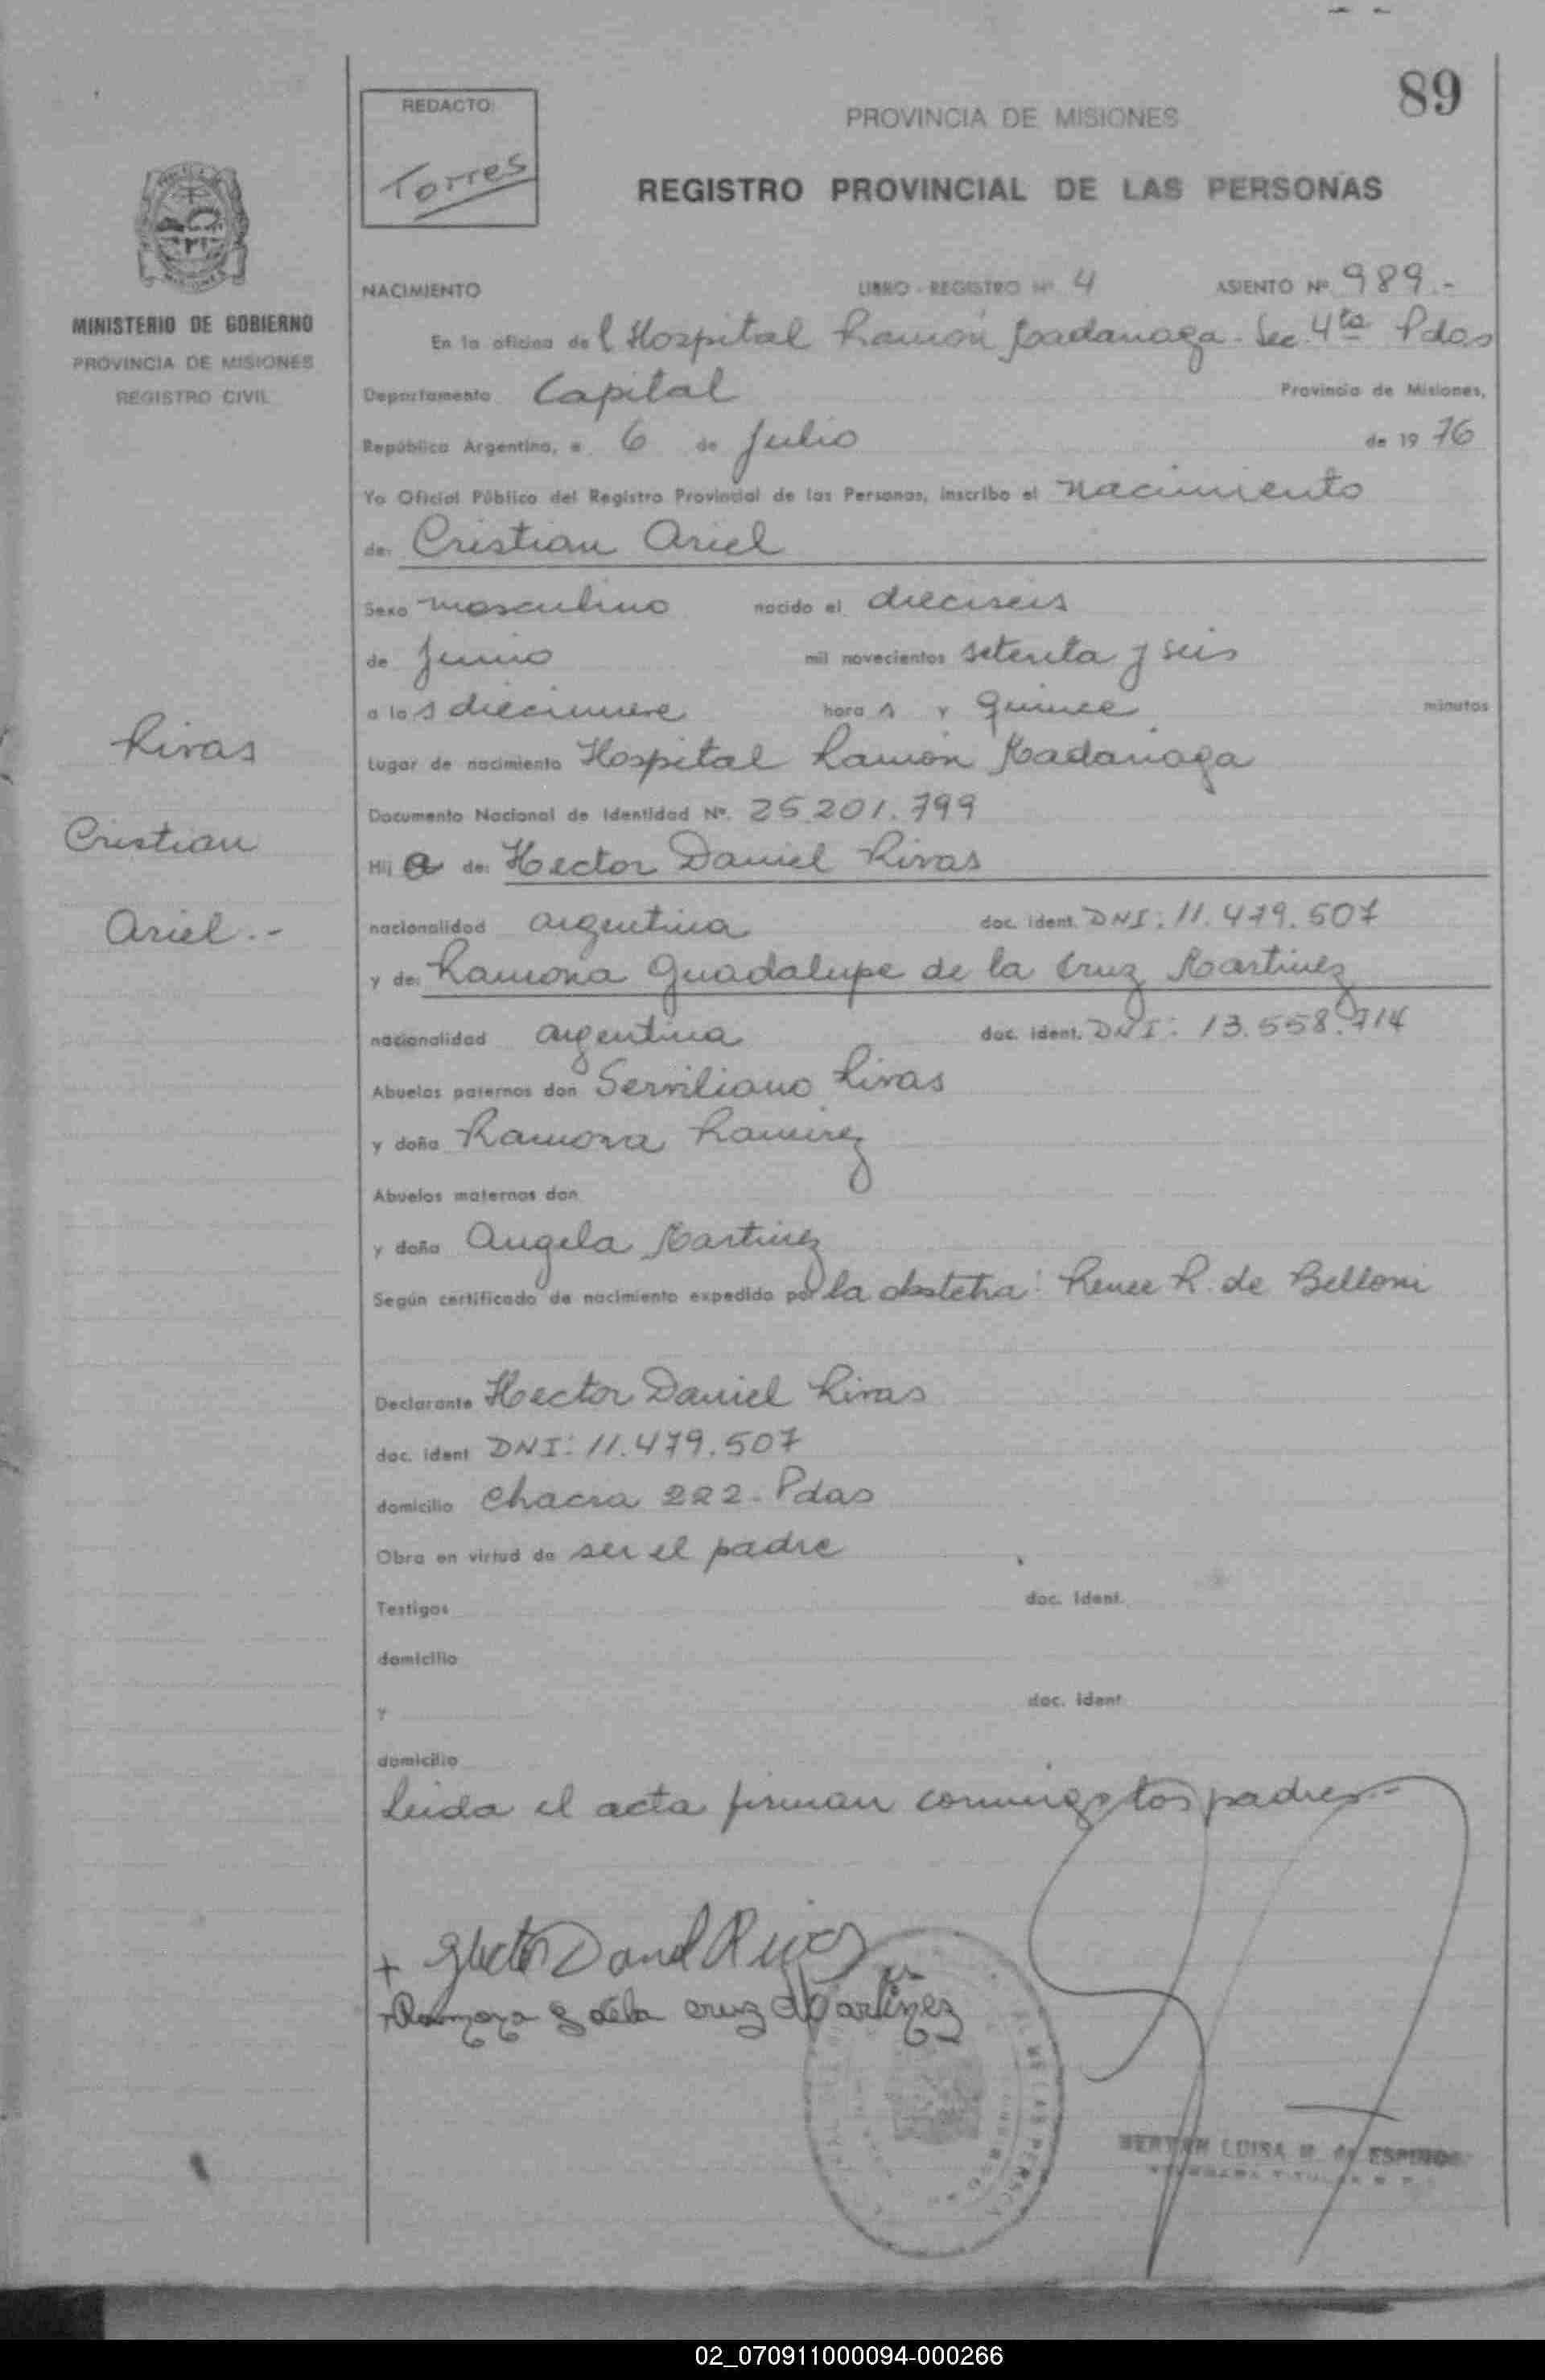 89
REDACTO:
Torres
PROVINCIA DE MISIONES
REGISTRO PROVINCIAL DE LAS PERSONAS
MINISTERIO DE GOBIERNO
PROVINCIA DE MISIONES
REGISTRO CIVIL
NACIMIENTO LIBRO - REGISTRO Nº 4 ASIENTO Nº 989.-
En la oficina del Hospital Ramón Madariaga - Sec. 4ta Pdas
Departamento Capital Provincia de Misiones,
República Argentina, a 6 de Julio de 1976
Yo Oficial Público del Registro Provincial de las Personas, inscribo el Nacimiento
de: Cristian Ariel
Sexo masculino nacido el dieciseis
de Junio mil novecientos setenta y seis
a las diecinueve horas y quince minutos
Lugar de nacimiento Hospital Ramón Madariaga
Documento Nacional de Identidad Nº. 25.201.799
Rivas
Cristian
Ariel.-
Hijo de: Hector Daniel Rivas
nacionalidad argentina doc. ident. DNI: 11.479.507
y de: Ramona Guadalupe de la Cruz Martinez
nacionalidad argentina doc. ident. DNI: 13.558.714
Abuelos paternos don Serviliano Rivas
y doña Ramona Ramirez
Abuelos maternos don
y doña Angela Martinez
Según certificado de nacimiento expedido por la obstetra: Renee R. de Belloni
Declarante Hector Daniel Rivas
doc. ident DNI: 11.479.507
domicilio Chacra 222 - Pdas
Obra en virtud de ser el padre
Testigos doc. ident.
domicilio
y doc. ident
domicilio
Leida el acta firman conmigo los padres.-
+ Hector Daniel Rivas
+ Ramona G de la Cruz Martinez
LUISA M. de
02_070911000094-000266